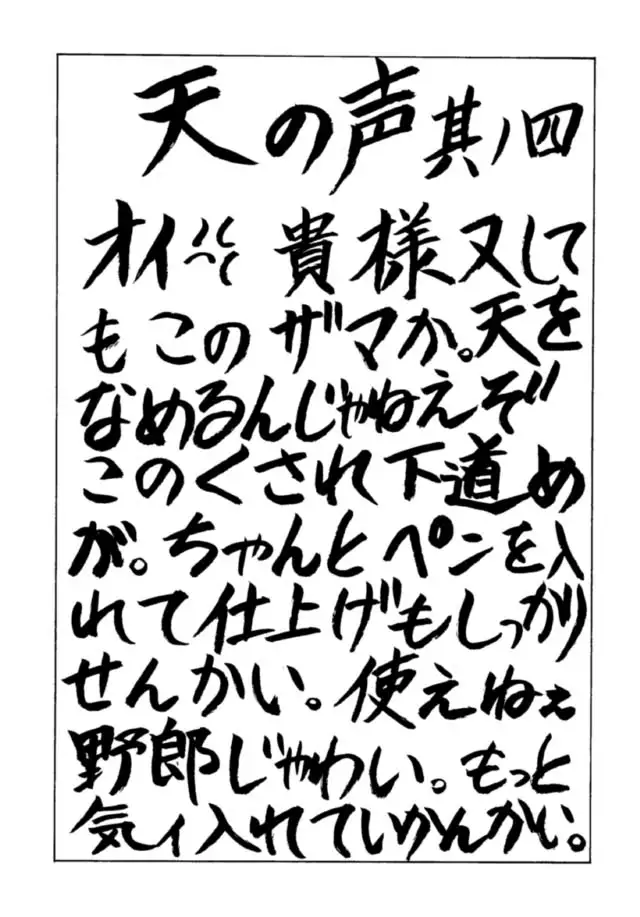 天の声其ノ四
オイ 貴様又して
もこのザマか。天を
なめるんじゃねえぞ
このくされ下道め
が。ちゃんとペンを入
れて仕上げもしっかり
せんかい。使えねぇ
野郎じゃわい。もっと
気ィ入れていかんかい。